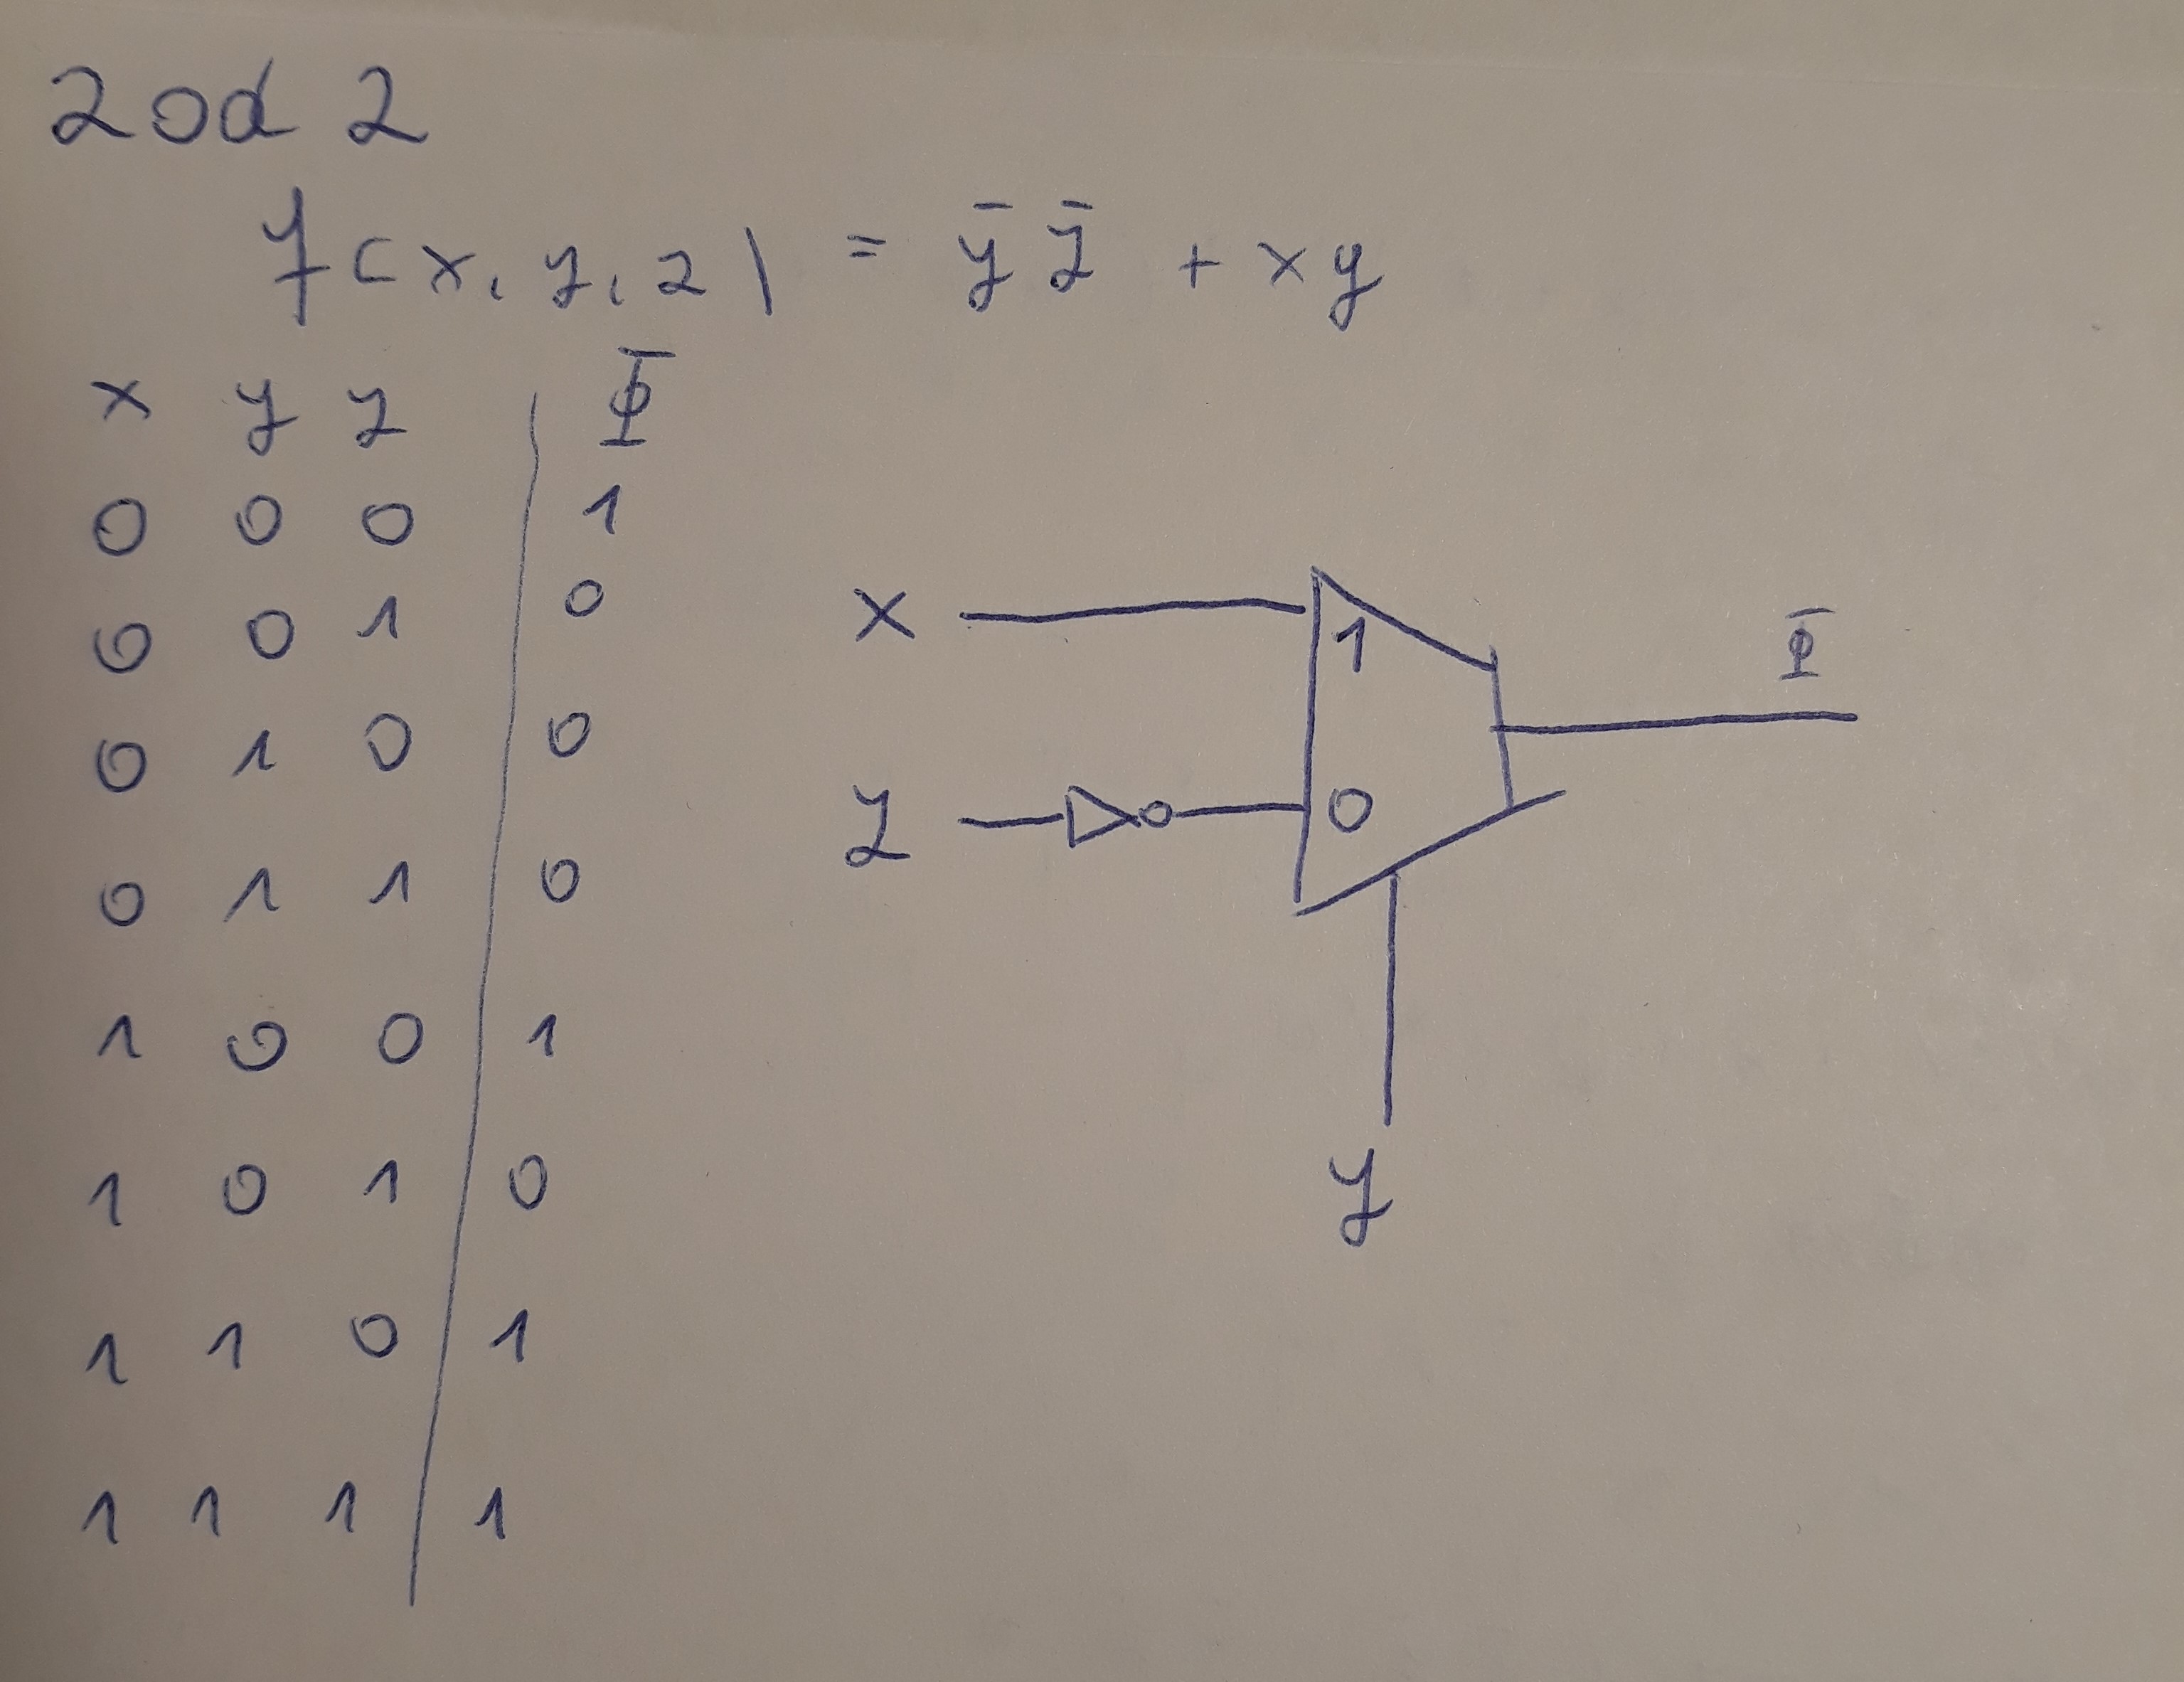 Zad 2
f(x, y, z) = ȳ z̄ + xy
x y z | Φ
0 0 0 | 1
0 0 1 | 0
0 1 0 | 0
0 1 1 | 0
1 0 0 | 1
1 0 1 | 0
1 1 0 | 1
1 1 1 | 1
x 1 Φ
z 0
y